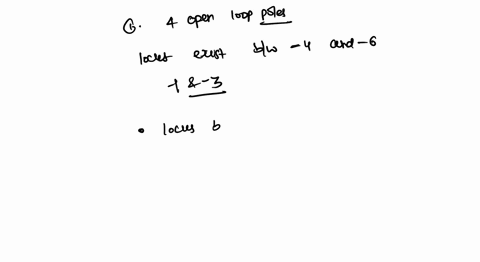 ①. 4 open loop poles
locus exist b/w -4 and -6
-1 & -3
• locus b